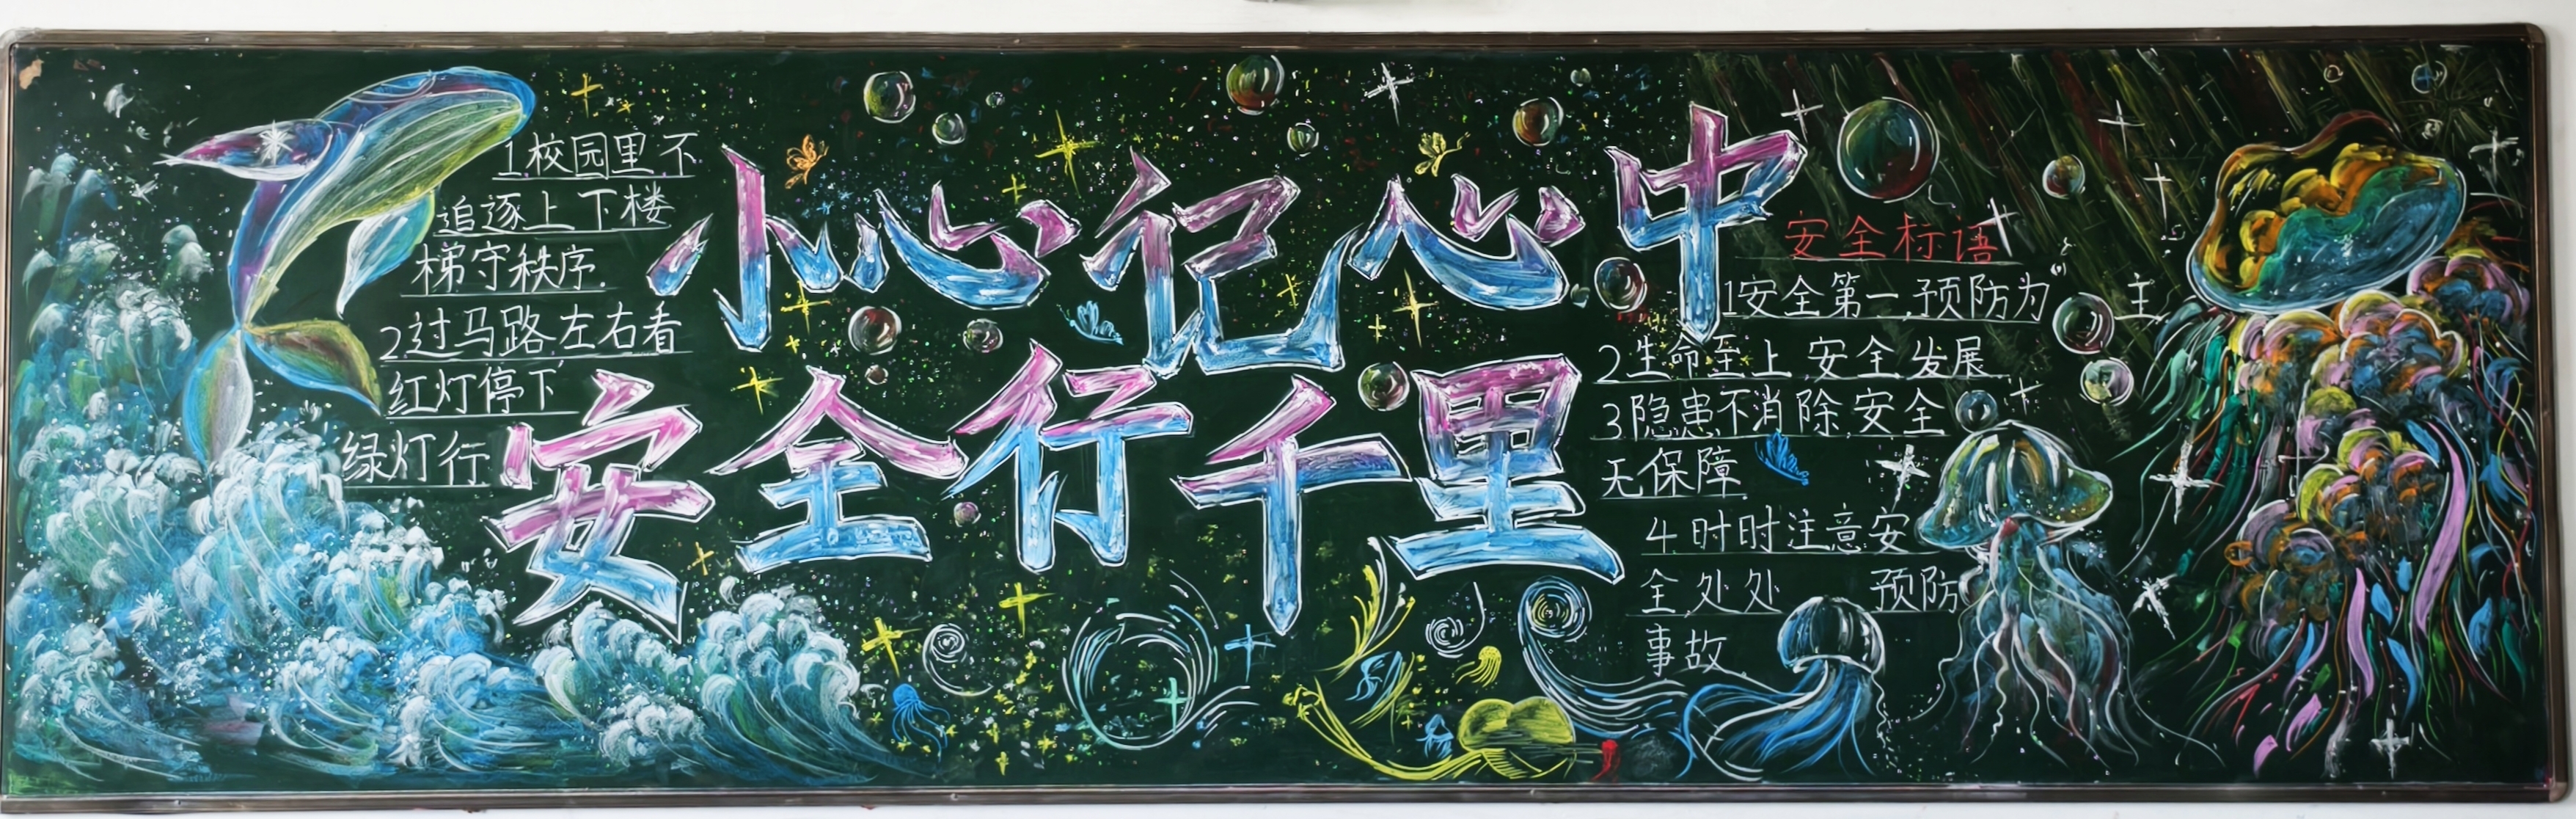 1.校园里不
追逐上下楼
梯守秩序.
2过马路.左右看
红灯停下
绿灯行
小心记心中
安全行千里
安全标语
1安全第一.预防为主.
2生命至上.安全发展.
3隐患不消除.安全
无保障.
4.时时注意安
全.处处 预防
事故